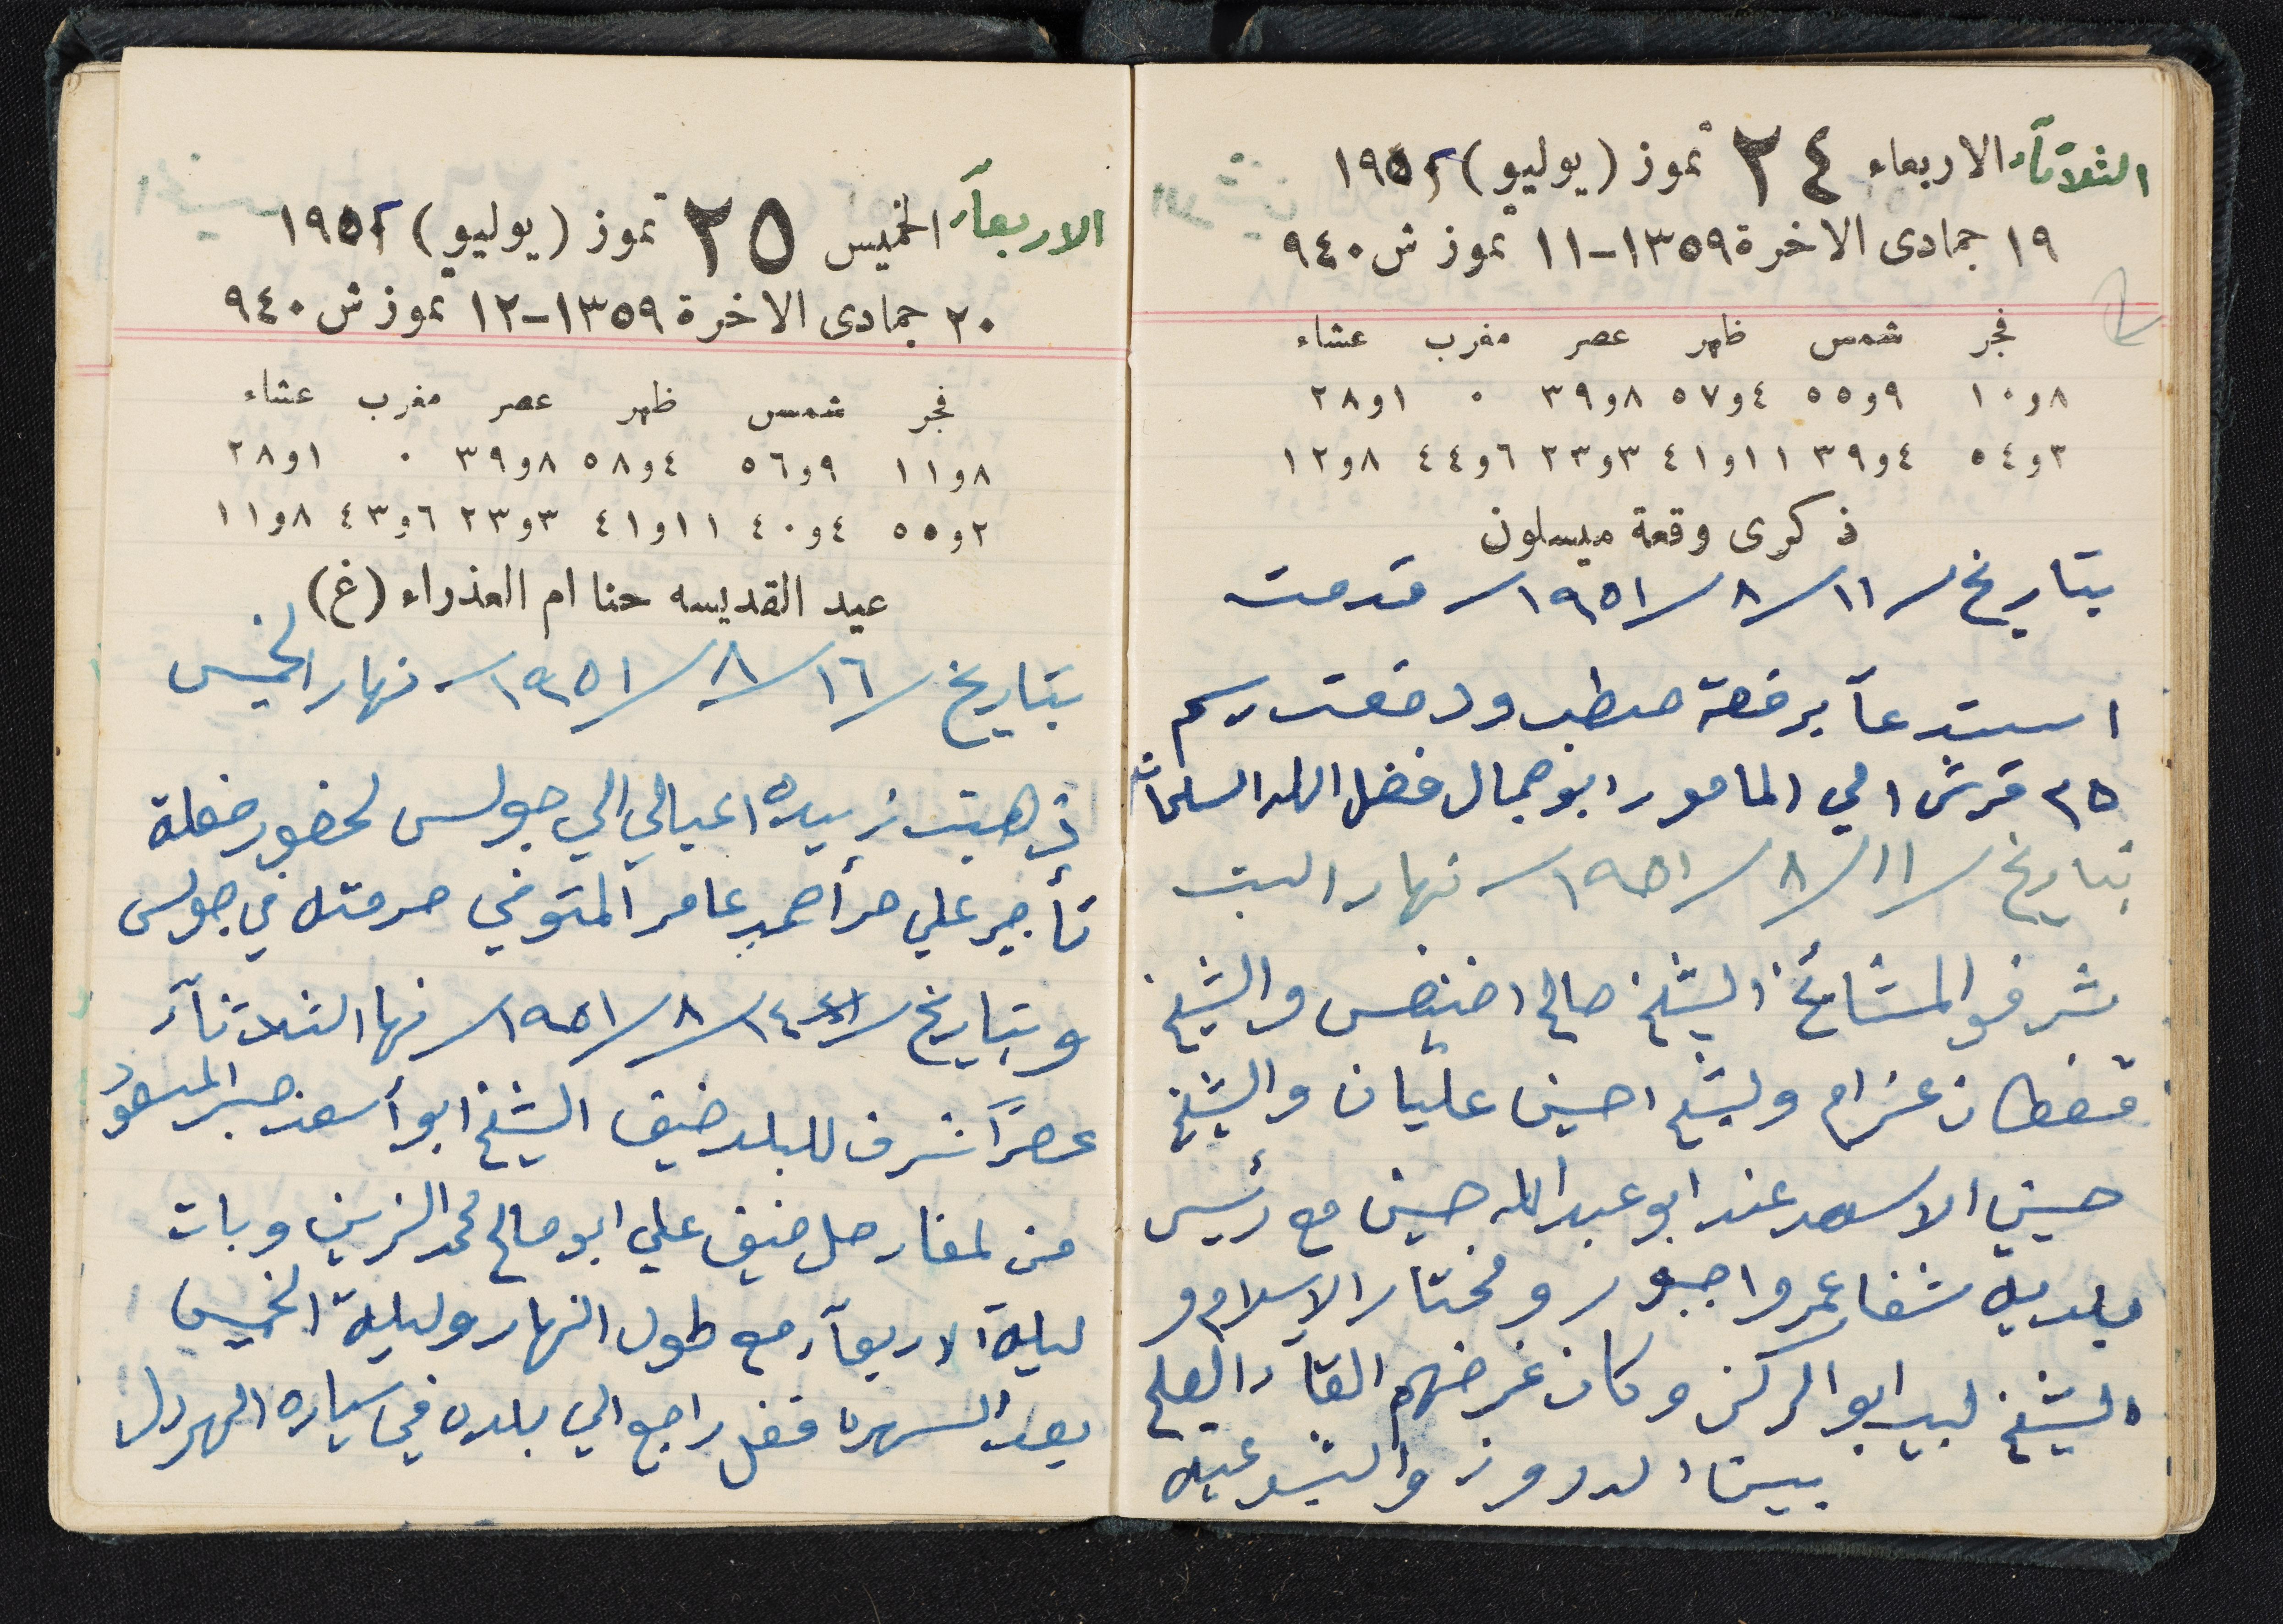 الثلاثآء الاربعاء ٢٤ تموز (يوليو) ١٩٥١
١٩ جمادى الاخرة ١٣٥٩-١١ تموز ش ٩٤٠
فجر شمس ظهر عصر مغرب عشاء
٨و١٠ ٩و٥٥ ٤و٥٧ ٨و٣٩ ٠ ١و٢٨
٢و٥٤ ٤و٣٩ ١١و٤١ ٣و٢٣ ٦و٤٤ ٨و١٢
ذكرى وقعة ميسلون
بتاريخ /١١/ ٨/ ١٩٥١/ قدمت
استدعآ برخصة حطب ودفعت رسم
٢٥ قرش الي المامور ابو جمال فضل الله
بتاريخ /١١/ ٨/ ١٩٥١/ نهار السبت
شرفو المشائخ الشيخ صالح اخنيفس والشيخ
قفطان عزام ولشيخ احسين عليان والشيخ
حسين الاسعد عند ابو عبدالله حسين مع رئيس
بلدية شفاعمرو اجبور ومختار الاسلام و
الشيخ لبيب ابو الركن وكان غرضهم القآء الصلح
بين الدروز و
الاربعآء الخميس ٢٥ تموز (يوليو) ١٩٥١
٢٠ جمادى الاخرة ١٣٥٩-١٢ تموز ش ٩٤٠
فجر شمس ظهر عصر مغرب عشاء
٨و١١ ٩و٥٦ ٤و٥٨ ٨و٣٩ ٠ ١و٢٨
٢و٥٥ ٤و٤٠ ١١و٤١ ٣و٢٣ ٦و٤٣ ٨و١١
عيد القديسه حنا ام العذراء (غ)
بتاريخ /١٦/ ٨/ ١٩٥١/ نهار الخميس
ذهبت زبيده اعيالي الي جولس لحضور
تأجير علي احمد عامر المتوفي حرمته في جولس
وبتاريخ /١٤/ ٨/ ١٩٥١/ نها الثلاثآء
عصرًا شرف للبلد ضيف الشيخ ابو أسعد جبر
من لمغار حل ضيف علي ابو صالح محمد الزين وبات
ليلة الاربعآء مع طول النهار وليلة الخميس
بعد السهره قفل راجع الي بلده في سياره